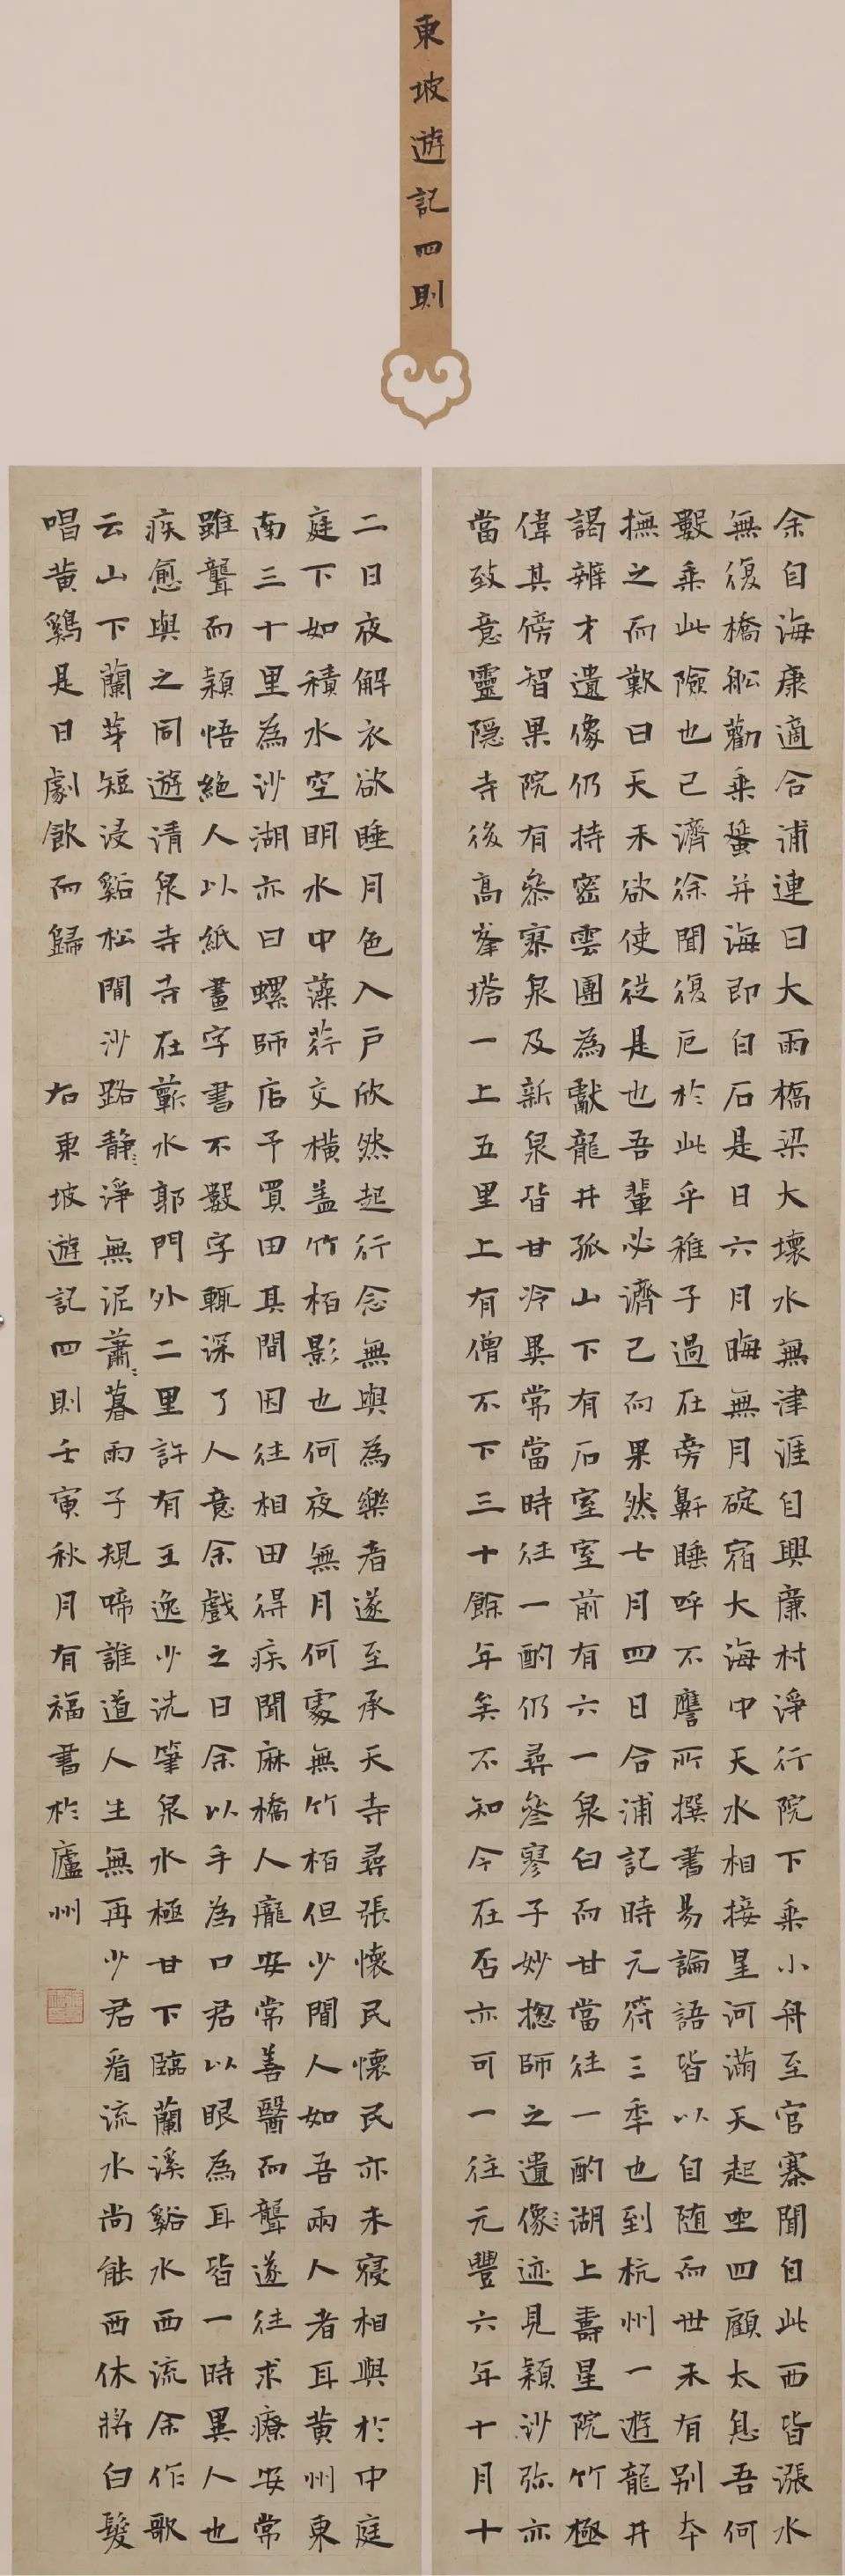 東坡遊記四則
余自海康適合浦連日大雨橋梁大壞水無津涯自興廉村淨行院下乘小舟至官寨聞自此西皆漲水
無復橋船勸乘蜑并海即白石是日六月晦無月碇宿大海中天水相接星河滿天起坐四顧太息吾何
數乘此險也已濟徐聞復厄於此乎稚子過在旁鼾睡呼不應所撰書易論語皆以自随而世未有别本
撫之而歎曰天未欲使從是也吾輩必濟已而果然七月四日合浦記時元符三年也到杭州一遊龍井
謁辨才遺像仍持密雲團為獻龍井孤山下有石室室前有六一泉白而甘當往一酌湖上壽星院竹極
偉其傍智果院有參寥泉及新泉皆甘冷異常當時往一酌仍尋參寥子妙揔師之遺像〻迹見穎沙弥亦
當致意靈隱寺後高峯塔一上五里上有僧不下三十餘年矣不知今在否亦可一往元豐六年十月十
二日夜解衣欲睡月色入戶欣然起行念無與為樂者遂至承天寺尋張懷民懷民亦未寢相與於中庭
庭下如積水空明水中藻荇交橫盖竹栢影也何夜無月何處無竹栢但少閒人如吾兩人者耳黄州東
南三十里為沙湖亦曰螺師店予買田其間因往相田得疾聞麻橋人龐安常善醫而聾遂往求療安常
雖聾而穎悟絕人以紙畫字書不數字輒深了人意余戲之曰余以手為口君以眼為耳皆一時異人也
疾愈與之同遊清泉寺寺在蘄水郭門外二里許有王逸少洗筆泉水極甘下臨蘭溪谿水西流余作歌
云山下蘭芽短浸谿松間沙路靜〻淨無泥蕭〻暮雨子規啼誰道人生無再少君看流水尚能西休將白髮
唱黄鷄是日劇飲而歸 右東坡遊記四則壬寅秋月有福書於廬州